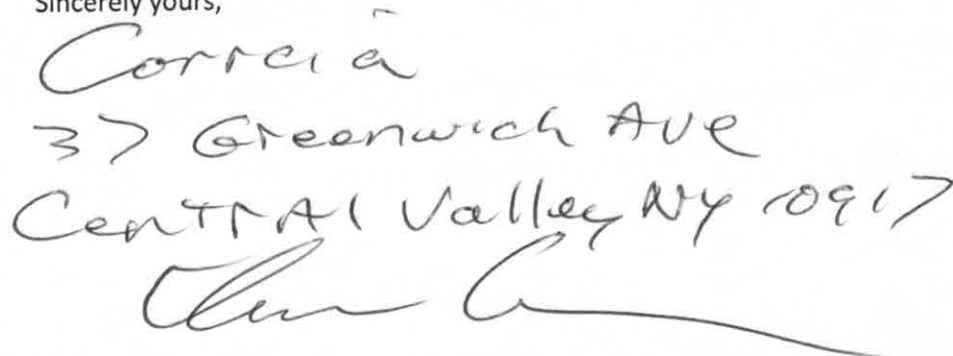 Sincerely yours,
Correia
37 Greenwich Ave
Central Valley NY 10917